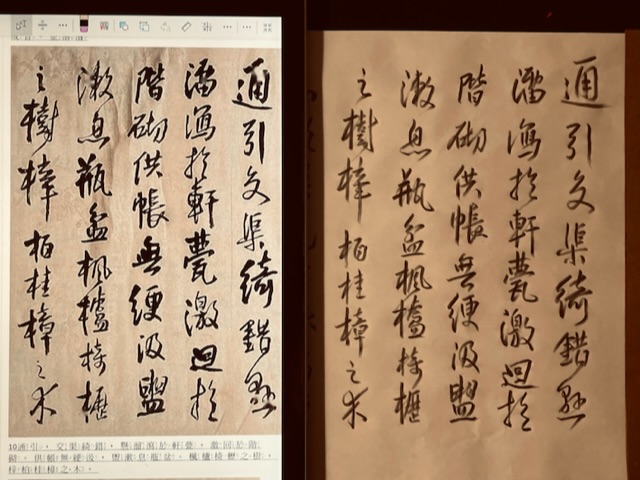 通引交渠綺錯懸
溜瀉於軒甍激迴於
階砌供帳無綆汲盥
漱息瓶盆楓櫨椅櫪
之樹梓柏桂樟之木
10通引，交渠綺錯，懸溜瀉於軒甍，激回於階
砌。供帳無綆汲，盥漱息瓶盆。楓櫨椅櫪之樹，
梓柏桂樟之木。
通引交渠綺錯懸
溜瀉於軒甍激迴於
階砌供帳無綆汲盥
漱息瓶盆楓櫨椅櫪
之樹梓柏桂樟之木